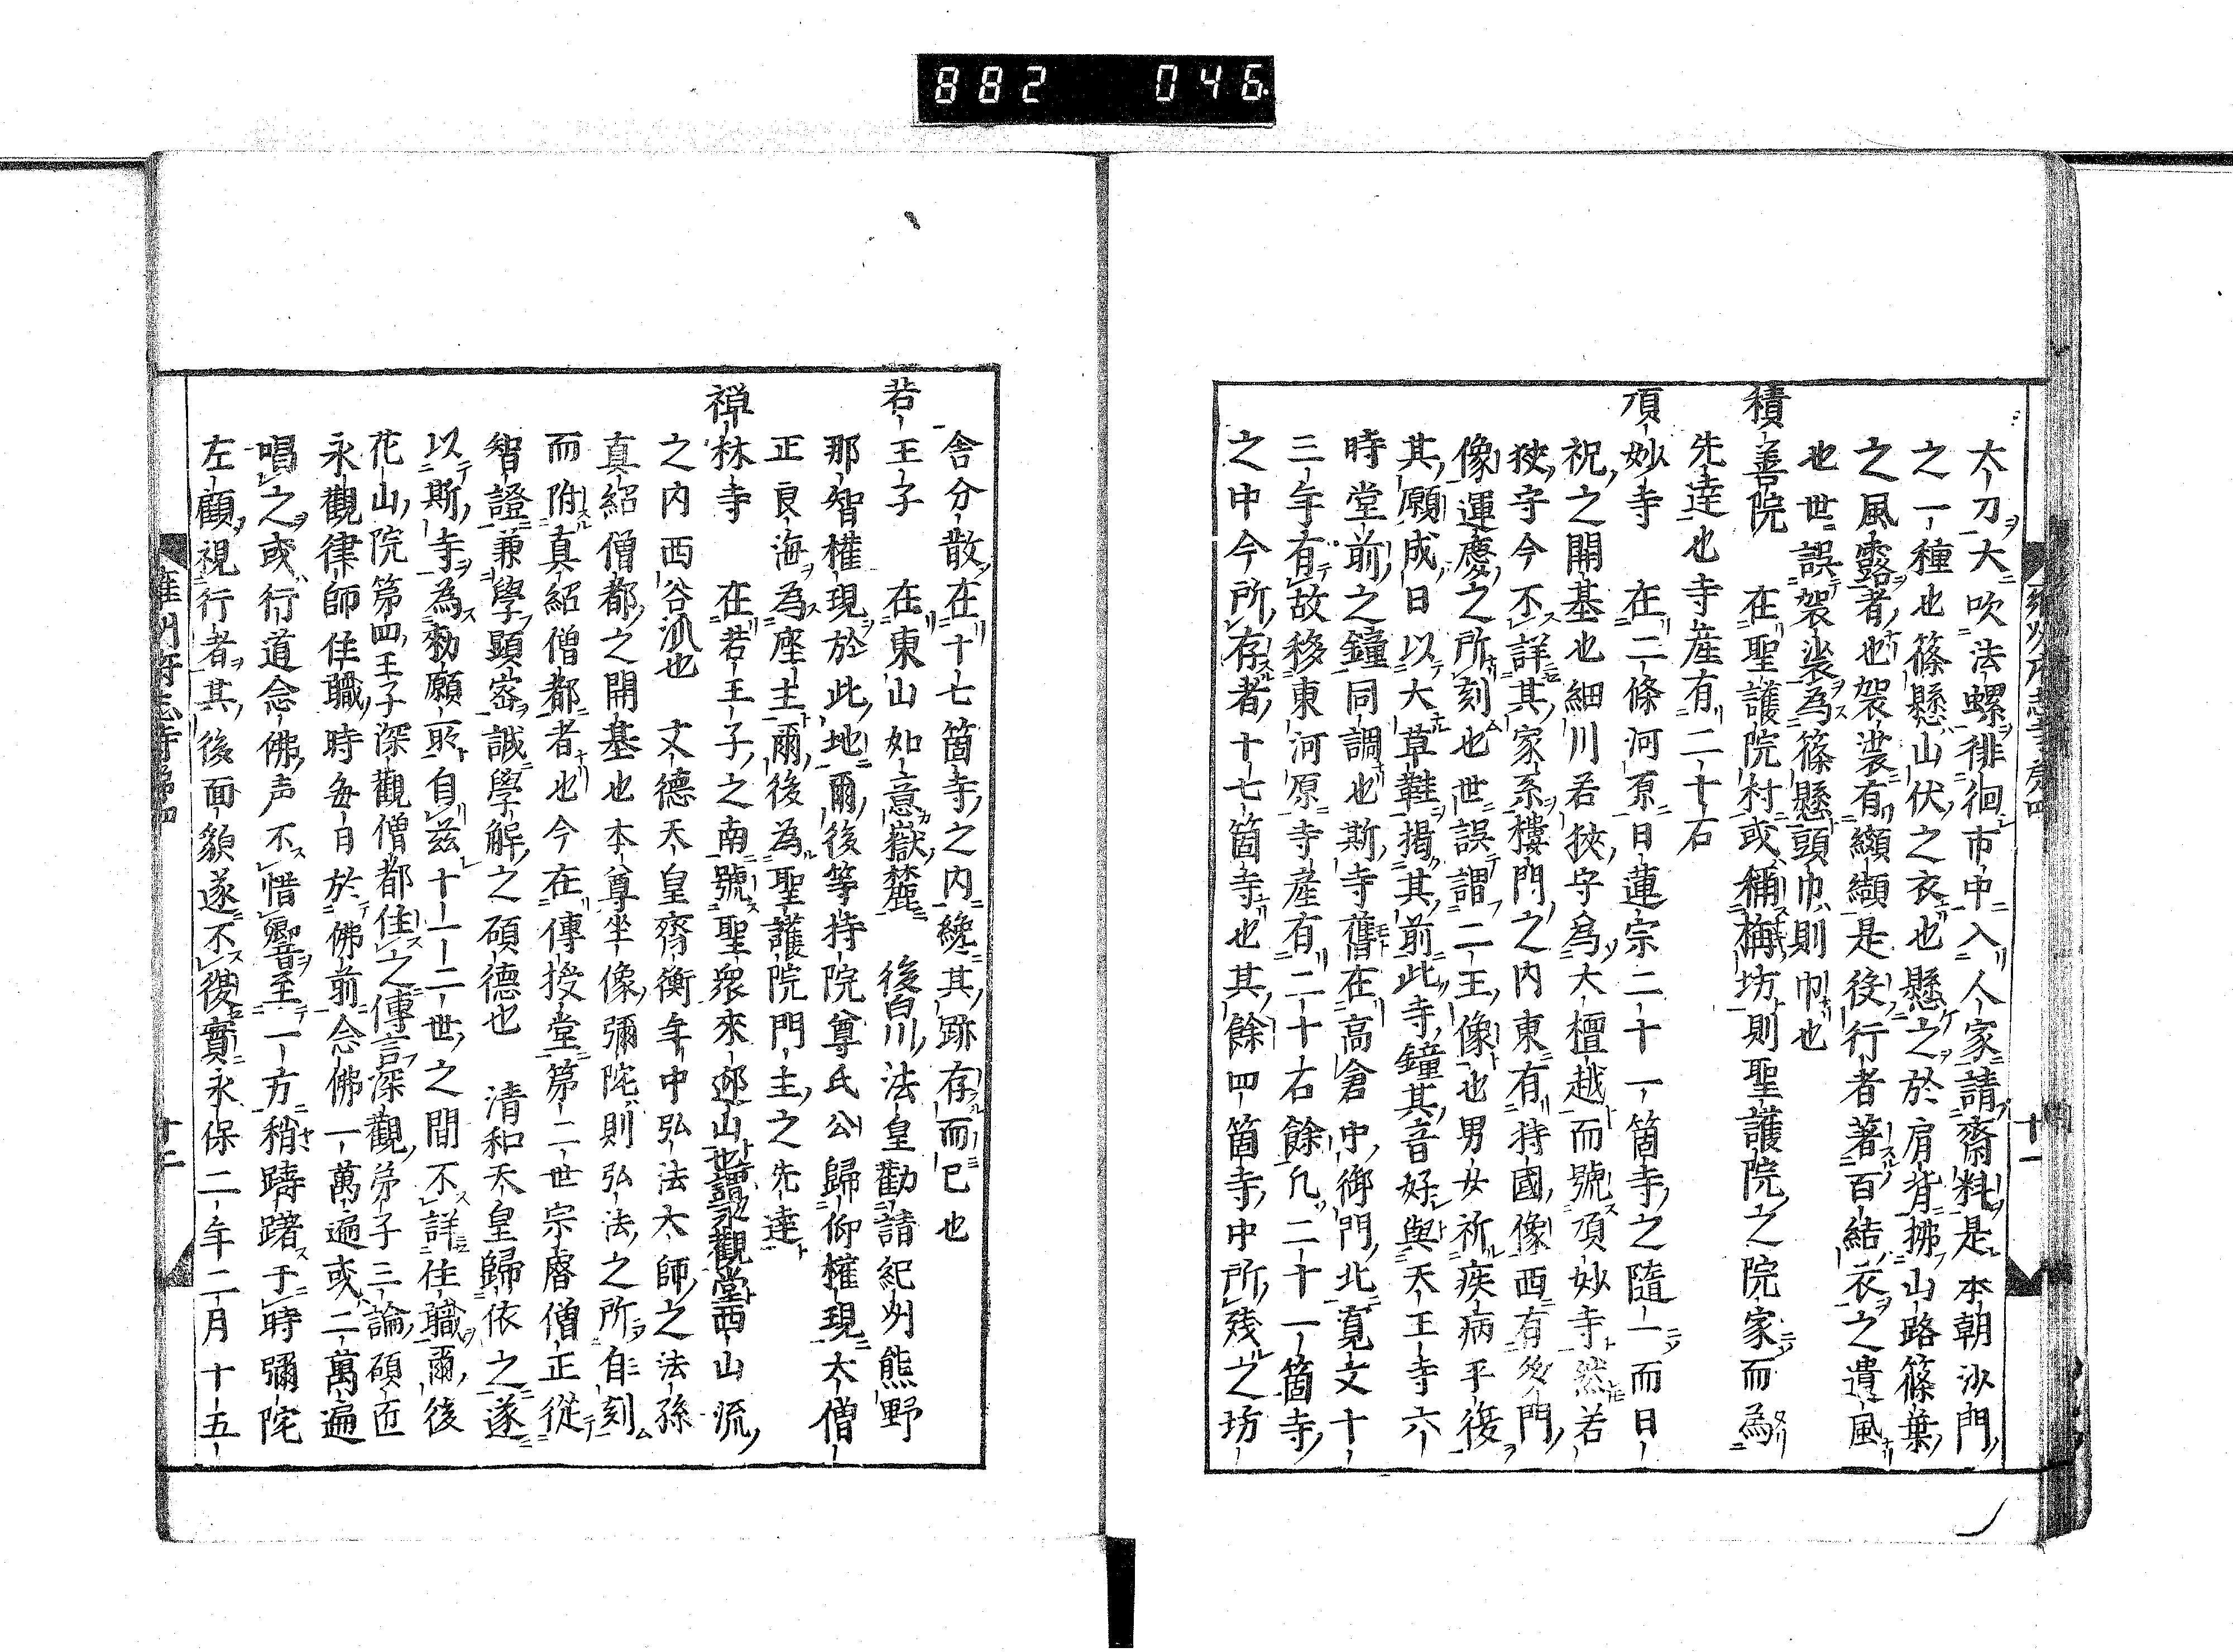 882 046
太刀大吹法螺徘徊市中入人家請齋料是本朝沙門
之一種也篠懸山伏之衣也懸之於肩背拂山路篠葉
之風露者也袈裟有纈纈是役行者著百結衣之遺風
也世誤袈裟為篠懸頭巾則巾也
積善院　在聖護院村或稱梅坊則聖護院之院家而為
先達也寺産有二十石
頂妙寺　在二條河原日蓮宗二十一箇寺之隨一而日
祝之開基也細川若狹守為大檀越而號頂妙寺然若
狹守今不詳其家系樓門之内東有持國像西有多門
像運慶之所刻也世誤謂二王像也男女祈疾病平復
其願成日以大草鞋掲其前此寺鐘其音好與天王寺六
時堂前之鐘同調也斯寺舊在高倉中御門北寛文十
三年有故移東河原寺産有二十石餘凡二十一箇寺
之中今所存者十七箇寺也其餘四箇寺中所残之坊
舎分散在十七箇寺之内纔其跡存而已也
若王子　在東山如意嶽麓　後白川法皇勸請紀州熊野
那智權現於此地爾後等持院尊氏公歸仰權現大僧
正良海為座主爾後為聖護院門主之先達
禅林寺　在若王子之南號聖衆來迎山也謂永觀堂西山流
之内西谷派也　文德天皇齊衡年中弘法大師之法孫
真紹僧都之開基也本尊坐像彌陀則弘法之所自刻
而附真紹僧都者也今在傳授堂第二世宗睿僧正從
智證兼學顯密誠學解之碩德也　清和天皇歸依之遂
以斯寺為勅願所自茲十一二世之間不詳住職爾後
花山院第四王子深觀僧都住之傳言深觀弟子三論碩匠
永觀律師住職時每日於佛前念佛一萬遍或二萬遍
唱之或行道念佛声不惜響至一方稍躊躇于時彌陀
左顧視行者其後面貌遂不復實永保二年二月十五
雍州府志寺第四　十一
雍州府志寺第四　十二